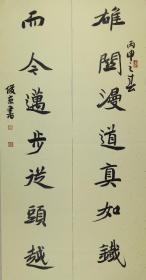 雄関漫道真如鐵
丙申之春
而今邁步從頭越
俊彥書